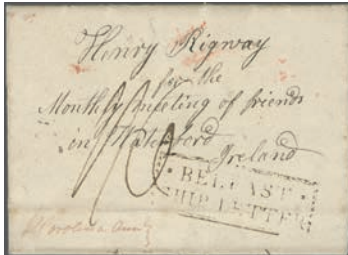 Henry Rigway
for the
Monthly meeting of friends
in Waterford
Ireland
BELFAST
SHIP LETTER